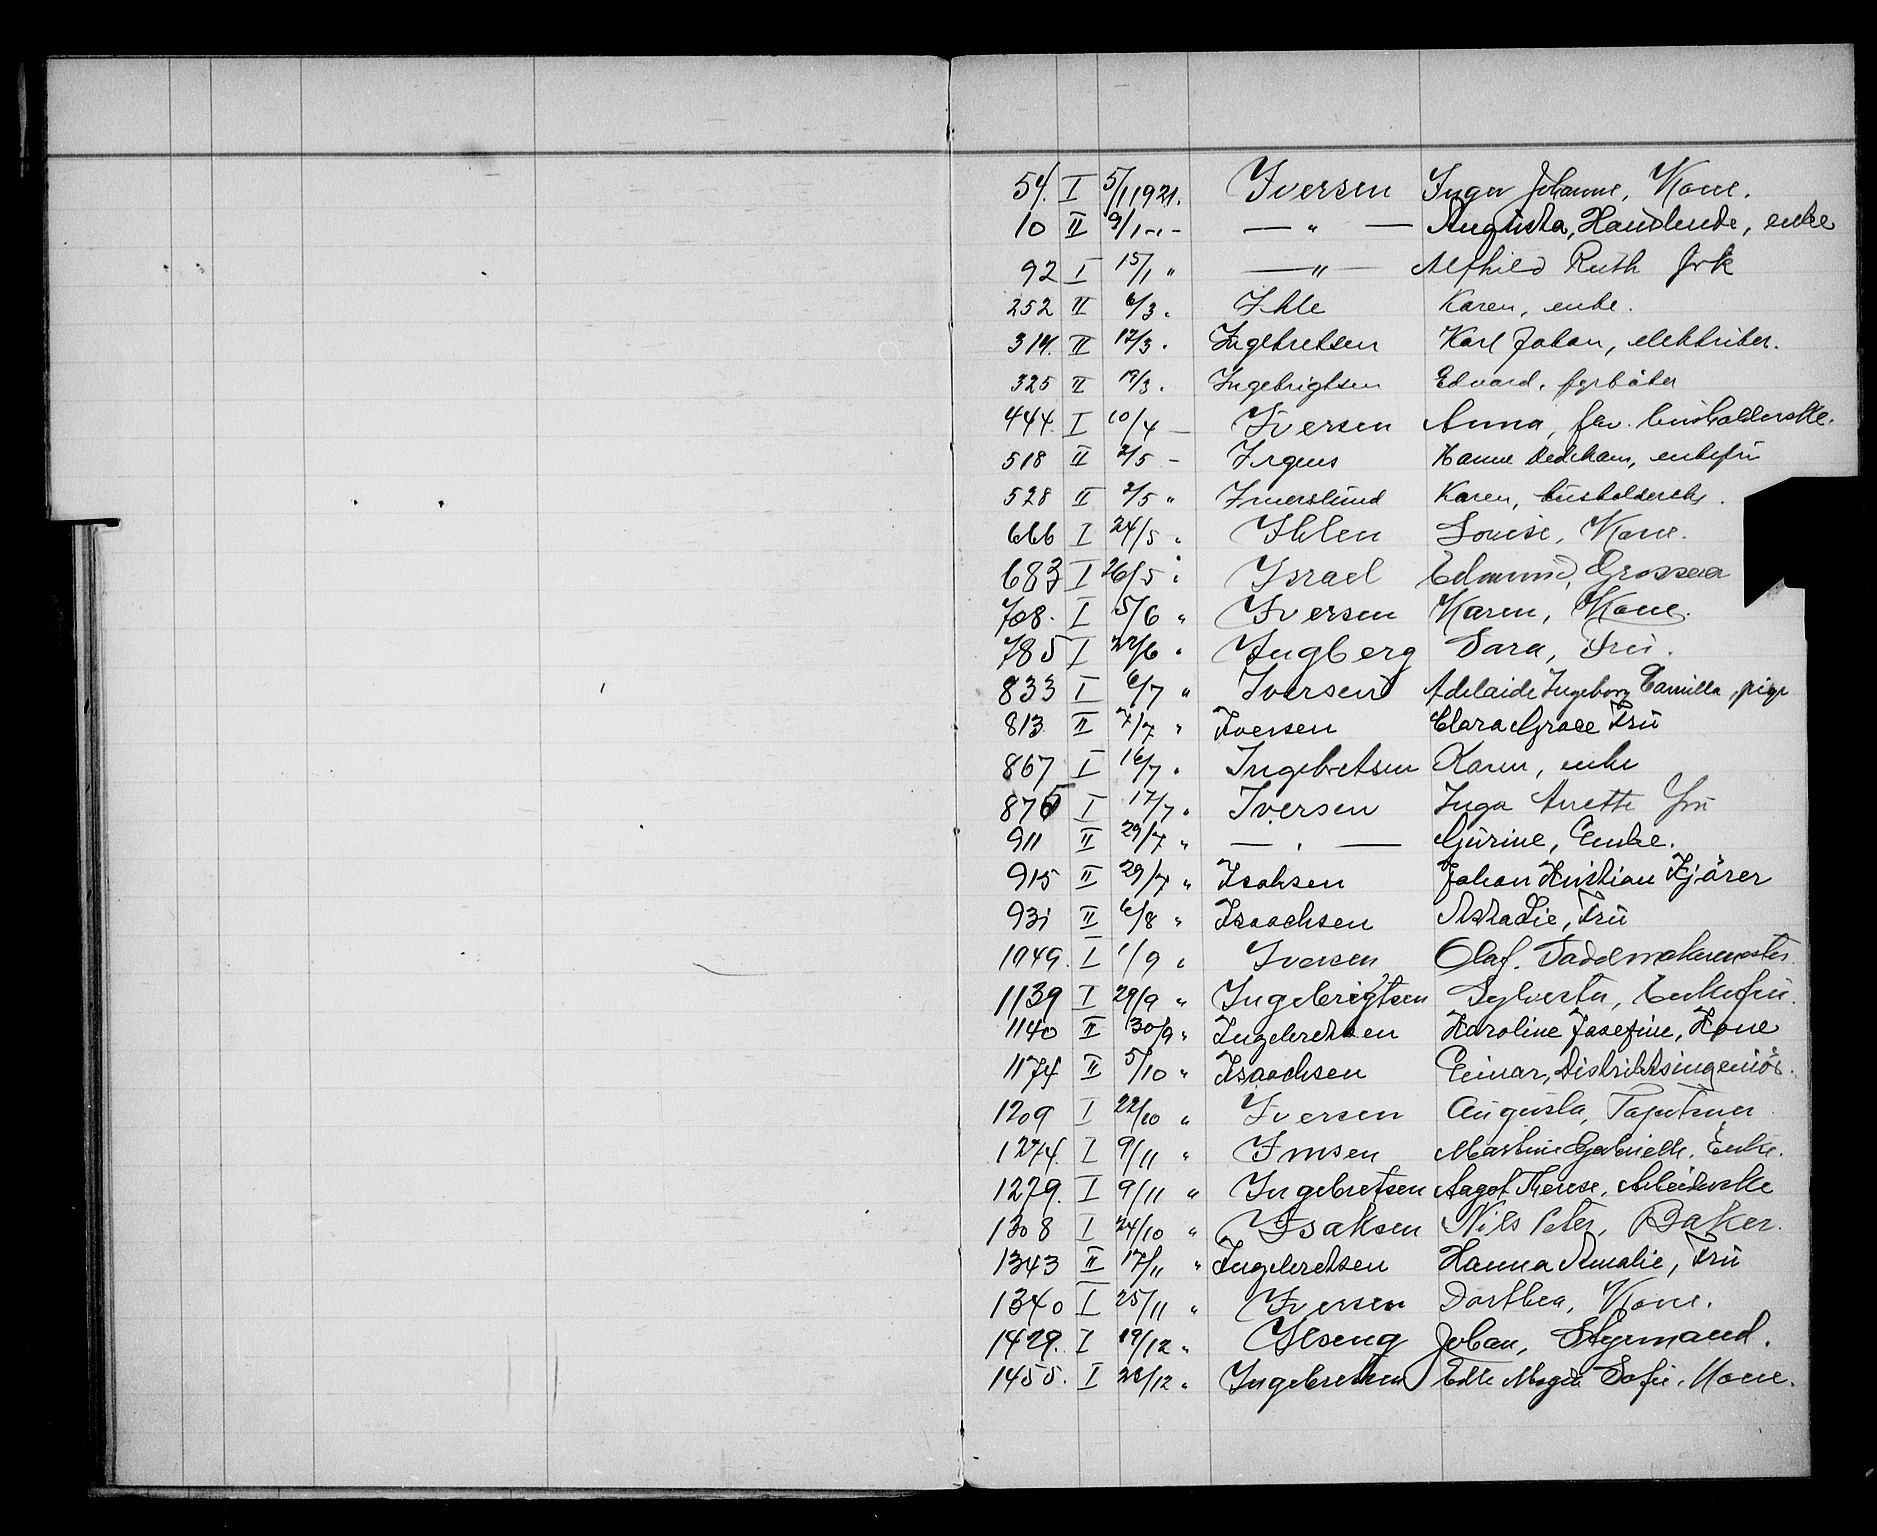 54. I 5/1 1921. Iversen Inger Johanne, Kone.
10 II 9/1 -„- — „ — Augusta, Handlende, enke
92 I 15/1 „ — „ — Alfhild Ruth frk
252 II 6/3 „ Ihle Karen, enke.
314. II 17/3 „ Ingebretsen Karl Johan, elektriker.
325 II 19/3 „ Ingebrigtsen Edvard, fyrbøter
444 I 10/4 — Iversen Anna, fhv. husholderske.
518 II 2/5 - Irgens Hanne Dedekam, enkefrü
528 II 2/5 „ Imerslund Karen, husholderske.
666 I 24/5 „ Ihlen Louise, Kone.
683 I 26/5 „ Israel Edmund, Grosserer
708. I 5/6 „ Iversen Karen, Kone.
785 I 22/6 „ Ingberg Sara, Frü.
833 I 6/7 „ Iversen Adelaide Ingeborg Camilla, pige
813 II 7/7 „ Iversen Clara Grace Frü
867 I 16/7 „ Ingebretsen Karen, enke
875 I 17/7 „ Iversen Inga Anette frü
911 II 29/7 „ — „ — Gurine, Enke.
915 II 29/7 „ Isaksen Johan Kristian Kjörer
931 II 6/8 „ Isaachsen Frü
1049. I 1/9 „ Iversen Olaf. Sadelmakermester.
1139 I 29/9 „ Ingebrigtsen Sylvester, Enkefrü.
1140 II 30/9 „ Ingebretsen Karoline Josefine, Kone
1174 II 5/10 „ Isaachsen Einar, Distriktsingeniör.
1209 I 22/10 „ Iversen Augusta,
1274. I 9/11 „ Imsen Martine Gabrielle, Enke.
1279. I 9/11 „ Ingebretsen Aagot Therese, Arbeiderske
1308 I 24/10 „ Isaksen Nils Peter, Baker.
1343 II 17/11 „ Ingebretsen Hanna Amalie, Frü
1340 I 25/11 „ Iversen Dorthea, Kone.
1429. I 19/12 „ Ilseng Johan, Styrmand.
1455. I 28/12 „ Ingebretsen Edle Magda Sofie. Kone.